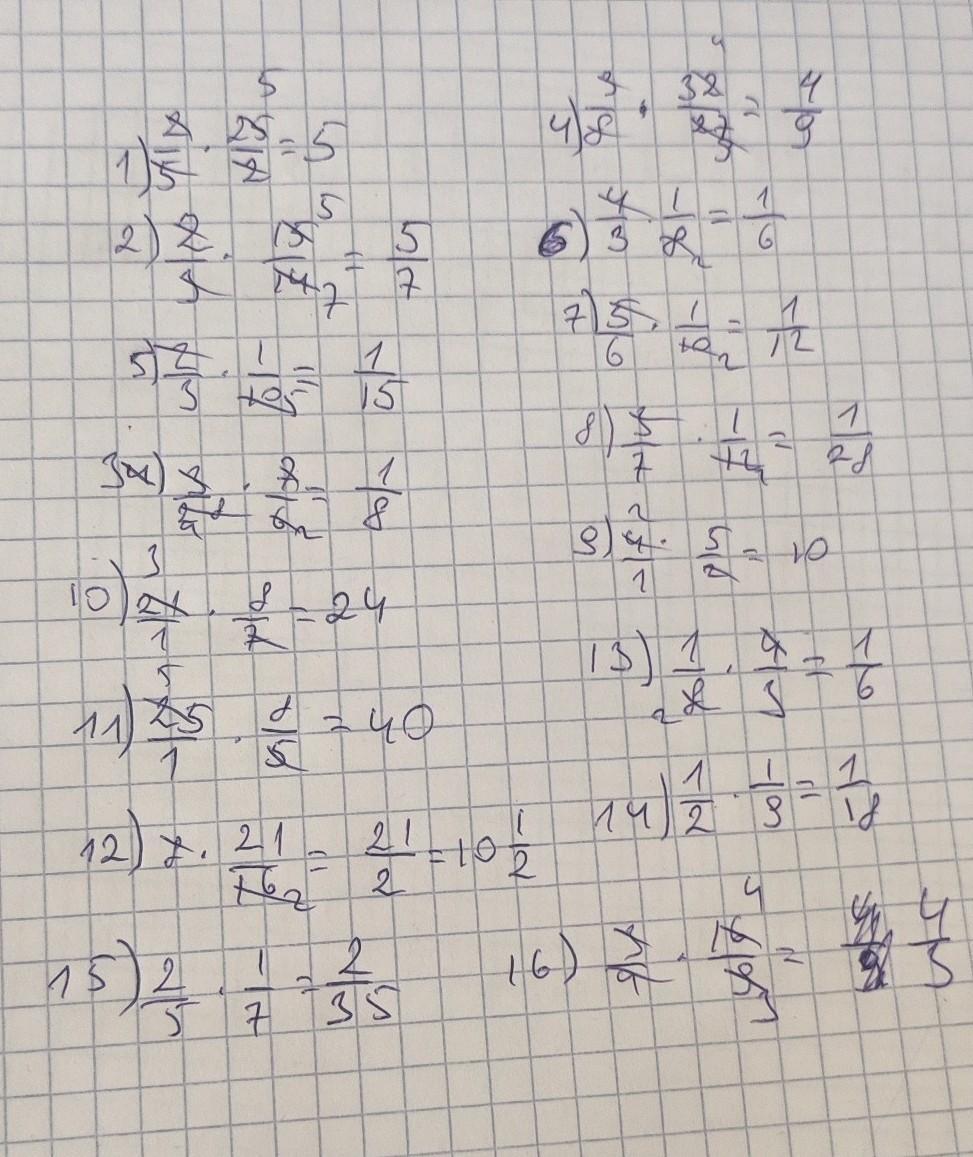 1) 2/5 · 25/2 = 5
5
2) 2/3 · 15/14 = 5/7
5
7
5) 2/3 · 1/10 = 1/15
5
3) 3/24 · 2/6 = 1/8
2
10) 21/1 · 8/7 = 24
3
11) 25/1 · 8/5 = 40
5
12) 7 · 21/16 = 21/2 = 10 1/2
2
15) 2/5 · 1/7 = 2/35
4) 3/8 · 32/27 = 4/9
4
6) 4/3 · 1/8 = 1/6
2
7) 5/6 · 1/10 = 1/12
2
8) 3/7 · 1/12 = 1/28
4
9) 4/1 · 5/2 = 10
2
13) 1/8 · 4/3 = 1/6
2
14) 1/2 · 1/9 = 1/18
16) 3/4 · 16/9 = 4/3
4
3